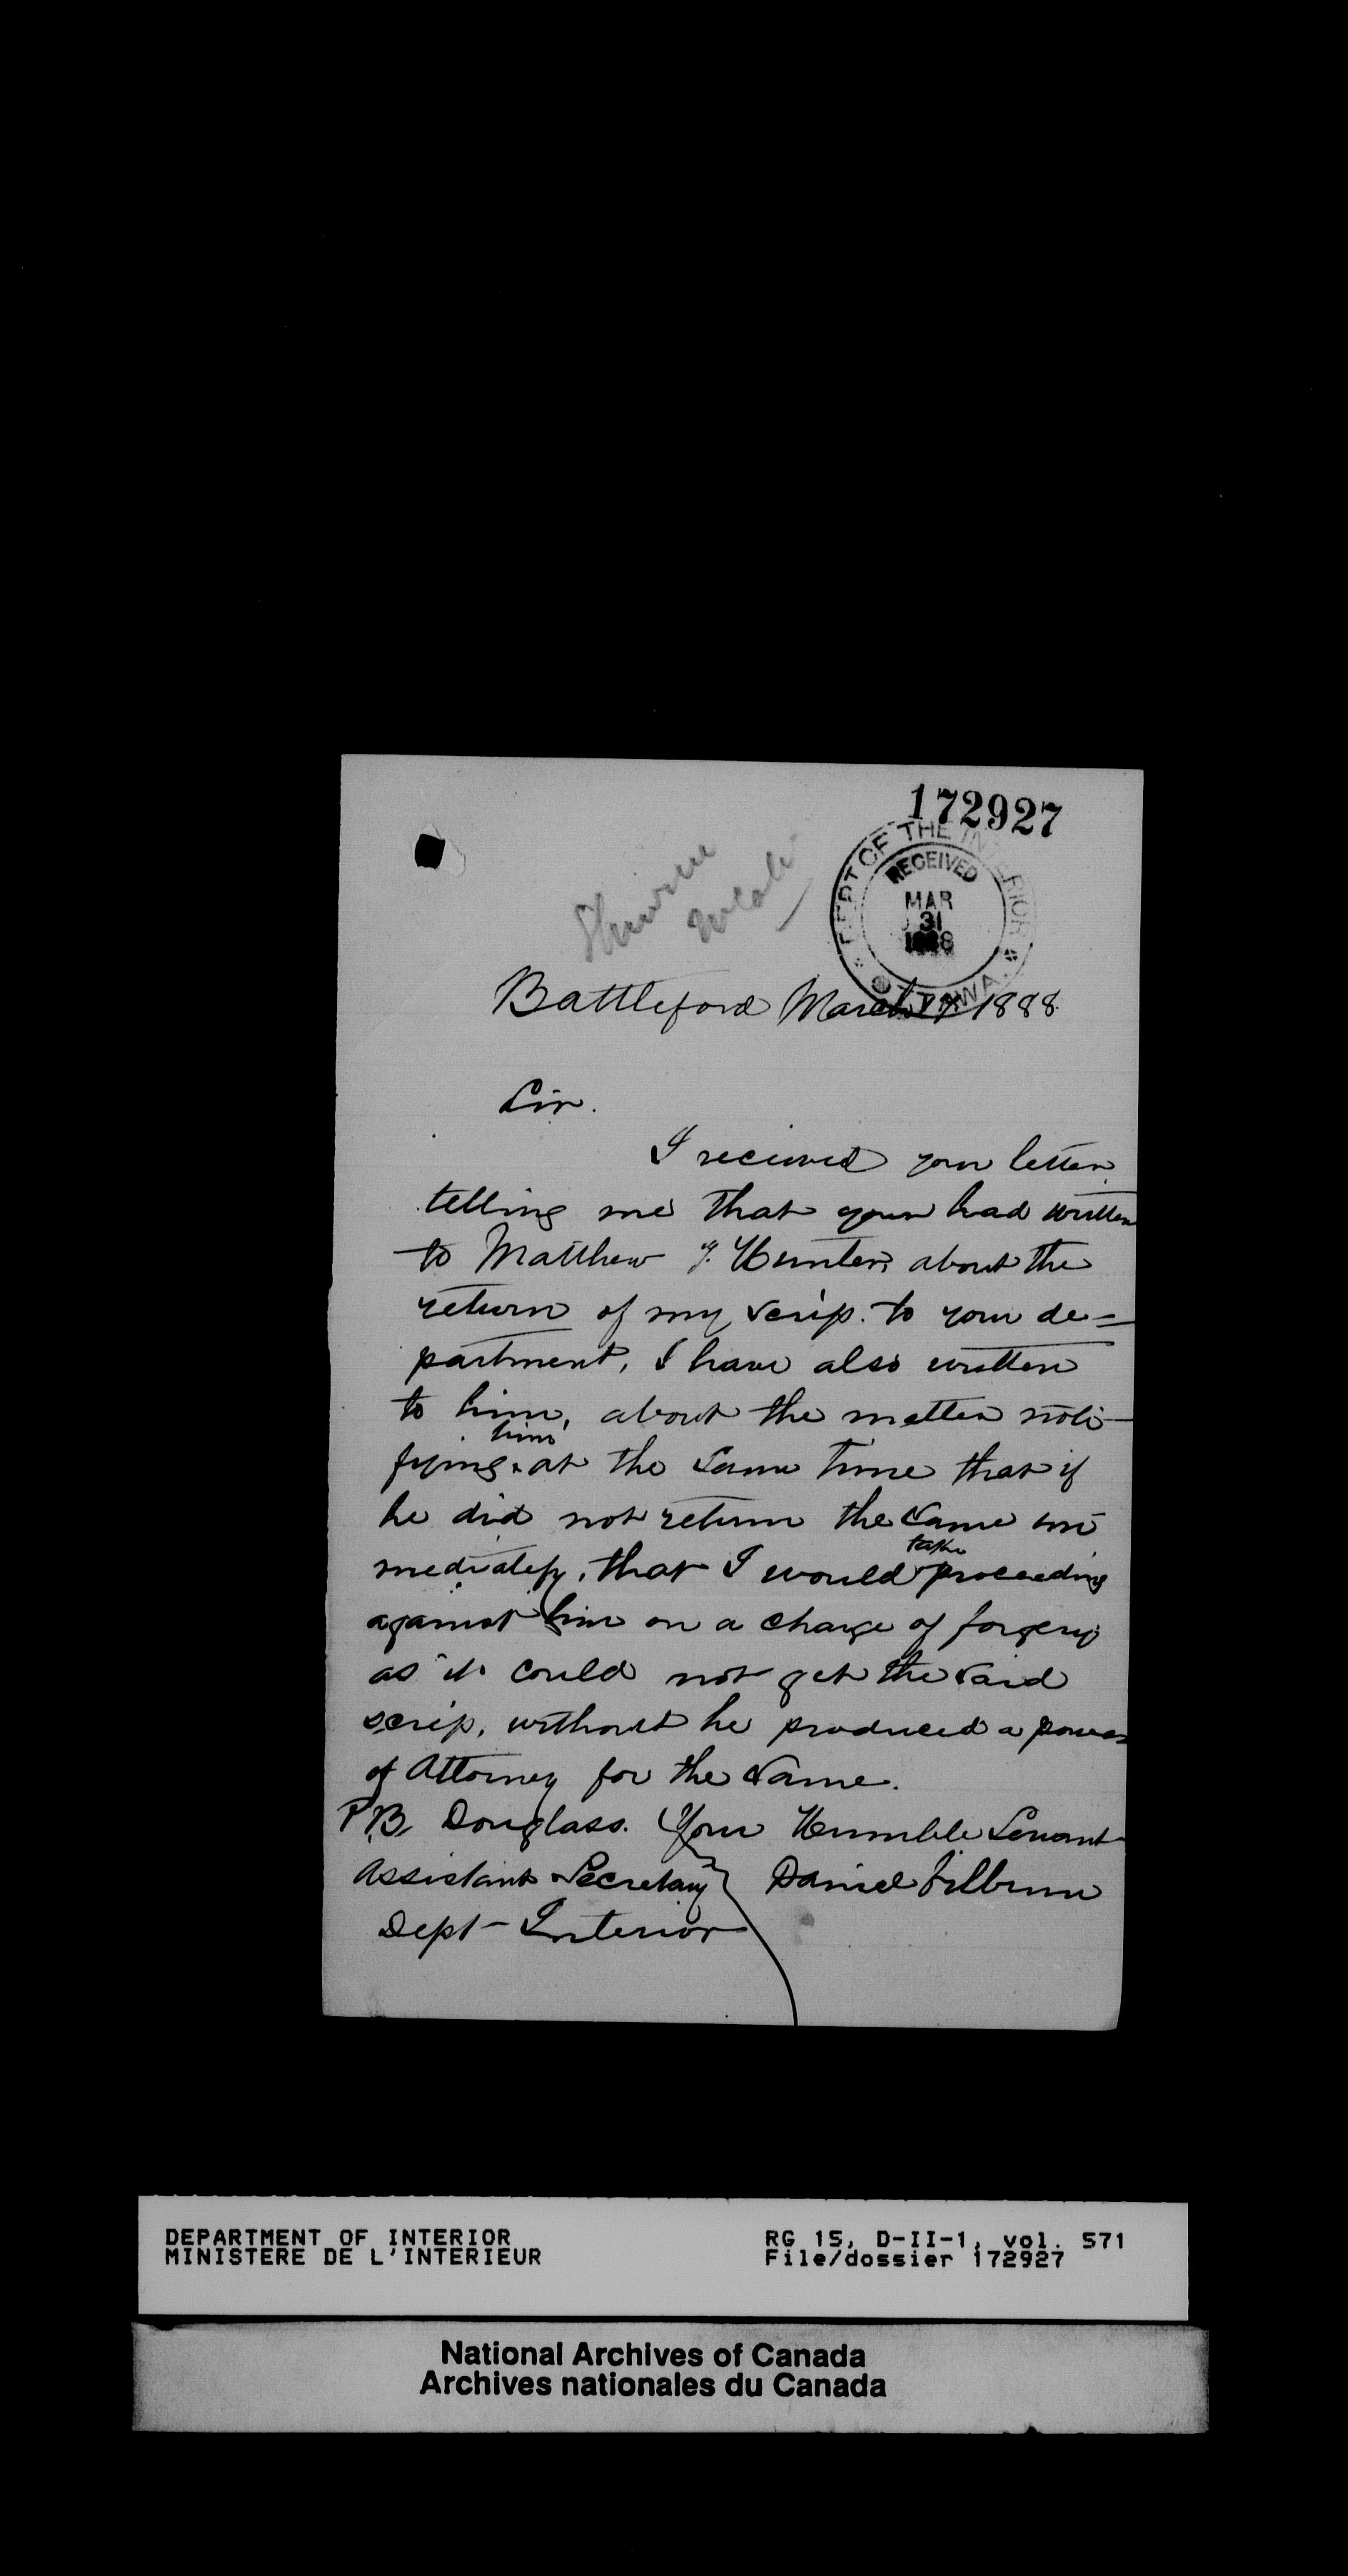 172927
DEPT OF THE INTERIOR
RECEIVED
MAR
31
1888
OTTAWA
Battleford March 1888
Sir.
I received your letter
telling me that your had written
to Matthew J. Hunter, about the
return of my scrip. to your de=
partment, I have also written
to him, about the matter noti-
him
fying at the same time that if
he did not return the same im
mediately, that I would take proceeding
against him on a charge of forgery
as it could not get the said
scrip, without he produced a power
of Attorney for the same.
P.B. Douglass. Your Humble Servant
Assistant Secretary Daniel Filbrun
Dept Interior
DEPARTMENT OF INTERIOR
MINISTERE DE L'INTERIEUR
RG 15, D-II-1, vol. 571
File/dossier 172927
National Archives of Canada
Archives nationales du Canada